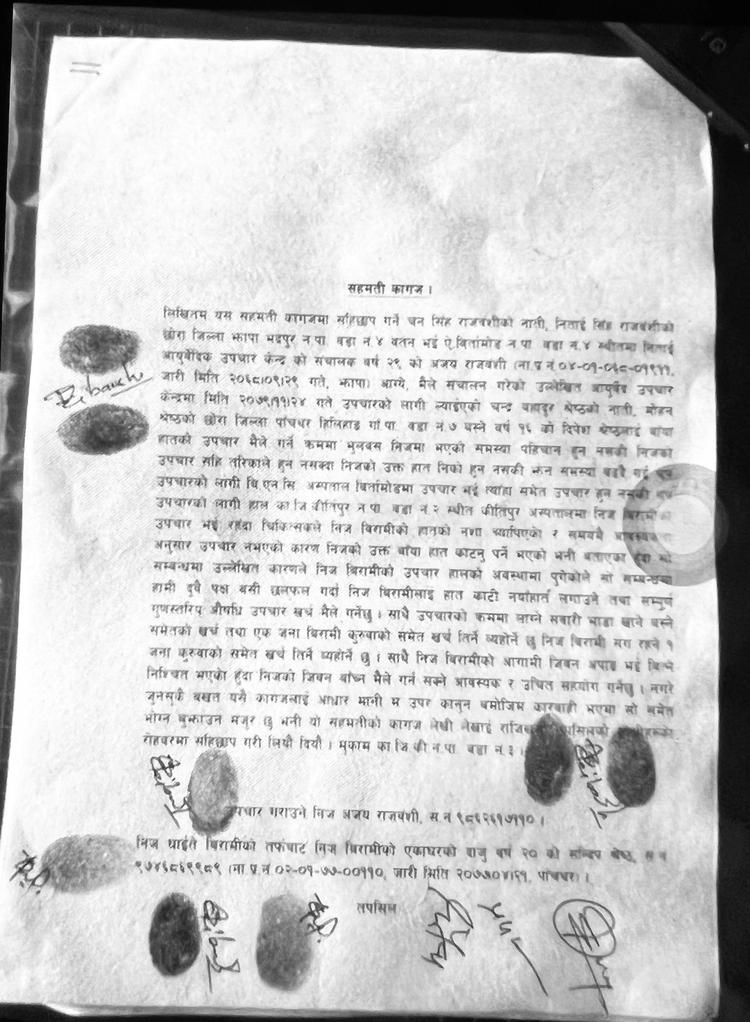 सहमती कागज ।
लिखितम यस सहमती कागजमा सहिछाप गर्ने चन सिंह राजवंशीको नाती, निताई सिंह राजवंशीको
छोरा जिल्ला झापा भद्रपुर न.पा. वडा न.४ वतन भई ऐ.बिर्तामोड न.पा. वडा न.४ स्थीतमा निताई
आयुर्वेदिक उपचार केन्द्र को संचालक वर्ष २९ को अजय राजवंशी (ना.प्र.नं.०४-०१-०६८-०१९११,
जारी मिति २०६८।०९।२९ गते, झापा) आग्ये, मैले संचालन गरेको उल्लेखित आयुर्वेद उपचार
केन्द्रमा मिति २०७९।११।२४ गते उपचारको लागी ल्याईएको चन्द्र बहादुर श्रेष्ठको नाती, मोहन
श्रेष्ठको छोरा जिल्ला पाँचथर हिलिहाङ गाँ.पा. वडा न.७ बस्ने वर्ष १६ को दिपेश श्रेष्ठलाई बाँया
हातको उपचार मैले गर्ने क्रममा भुलबस निजमा भएको समस्या पहिचान हुन नसकी निजको
उपचार सहि तरिकाले हुन नसक्दा निजको उक्त हात निको हुन नसकी झन समस्या बढ्दै गई थप
उपचारको लागी बि.एन.सि. अस्पताल बिर्तामोडमा उपचार भई त्यहाँ समेत उपचार हुन नसकी थप
उपचारको लागी हाल का.जि.कीर्तिपुर न.पा. वडा न.२ स्थीत कीर्तिपुर अस्पतालमा निज बिरामीको
उपचार भई रहँदा चिकित्सकले निज बिरामीको हातको नशा च्यापिएको र समयमै आवश्यकता
अनुसार उपचार नभएको कारण निजको उक्त बाँया हात काट्नु पर्ने भएको भनी बताएका हुँदा सो
सम्बन्धमा उल्लेखित कारणले निज बिरामीको उपचार हालको अवस्थामा पुगेकोले सो सम्बन्धमा
हामी दुवै पक्ष बसी छलफल गर्दा निज बिरामीलाई हात काटी नयाँहात लगाउने तथा सम्पूर्ण
गुणस्तरिय औषधि उपचार खर्च मैले गर्नेछु । साथै उपचारको क्रममा लाग्ने सवारी भाडा खाने बस्ने
समेतको खर्च तथा एक जना बिरामी कुरुवाको समेत खर्च तिर्ने व्यहोर्ने छु निज बिरामी संग रहने १
जना कुरुवाको समेत खर्च तिर्ने व्यहोर्ने छु । साथै निज बिरामीको आगामी जिवन अपाङ्ग भई बित्ने
निश्चित भएको हुँदा निजको जिवन बाँच्न मैले गर्न सक्ने आवस्यक र उचित सहयोग गर्नेछु । नगरे
जुनसुकै बखत यसै कागजलाई आधार मानी म उपर कानुन बमोजिम कारवाही भएमा सो समेत
भोग्न बुझाउन मंजुर छु भनी यो सहमतीको कागज लेखी लेखाई
रोहवरमा सहिछाप गरी लियौं दियौं । मुकाम का.जि.की.न.पा. वडा न.३ ।
उपचार गराउने निज अजय राजवंशी, स.न.९८६२६१७११० ।
निज घाईते बिरामीको तर्फबाट निज बिरामीको एकाघरको दाजु वर्ष २० को सन्दिप श्रेष्ठ, स.न.
९७४६८६९९८९ (ना.प्र.नं.०२-०१-७७-००११०, जारी मिति २०७७।०४।२१, पाँचथर) ।
तपसिल